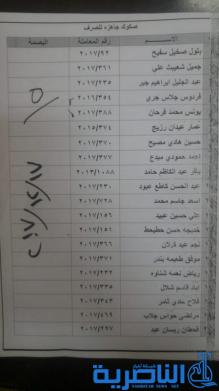 صكوك جاهزة للصرف
الاســـم رقم المعاملة البصمة
بتول صخيل سفيح ٢٠١٧/٩٢
جميل شعيبث علي ٢٠١٧/٣٦١
عبد الجليل ابراهيم جبر ٢٠١٧/٢٣٥
فردوس جلاس جري ٢٠١٦/٣٥٤
يونس محمد فرحان ٢٠١٧/٣٨٨
نصار عبدان رزيج ٢٠١٥/٣٧٤
حسين هادي مصبح ٢٠١٧/٣٧٠
احمد حمودي مبدع ٢٠١٧/٣٧٧
باقر عبد الكاظم حامد ٢٠١٣/١٠٨٨
عبد الحسن كاطع عبود ٢٠١٧/٢٣٠
اسعد جاسم محمد ٢٠١٧/٢٨
علي حسين عبيد ٢٠١٧/١٥٦
خديجه حسن حطيحط ٢٠١٧/١٥١
نجم عبد ٢٠١٧/٣٦٦
موفق طعيمه بندر ٢٠١٧/٣٧١
رياض نعمه شناوه ٢٠١٧/٢٣٢
اياد قاسم شلال ٢٠١٧/٣٣٥
فلاح هادي ثامر ٢٠١٧/٣٤٣
مرتضى حواس جلاب ٢٠١٧/٤٦٩
قحطان ريسان عبد ٢٠١٧/٢٩٧
شبكة أخبار
الناصرية